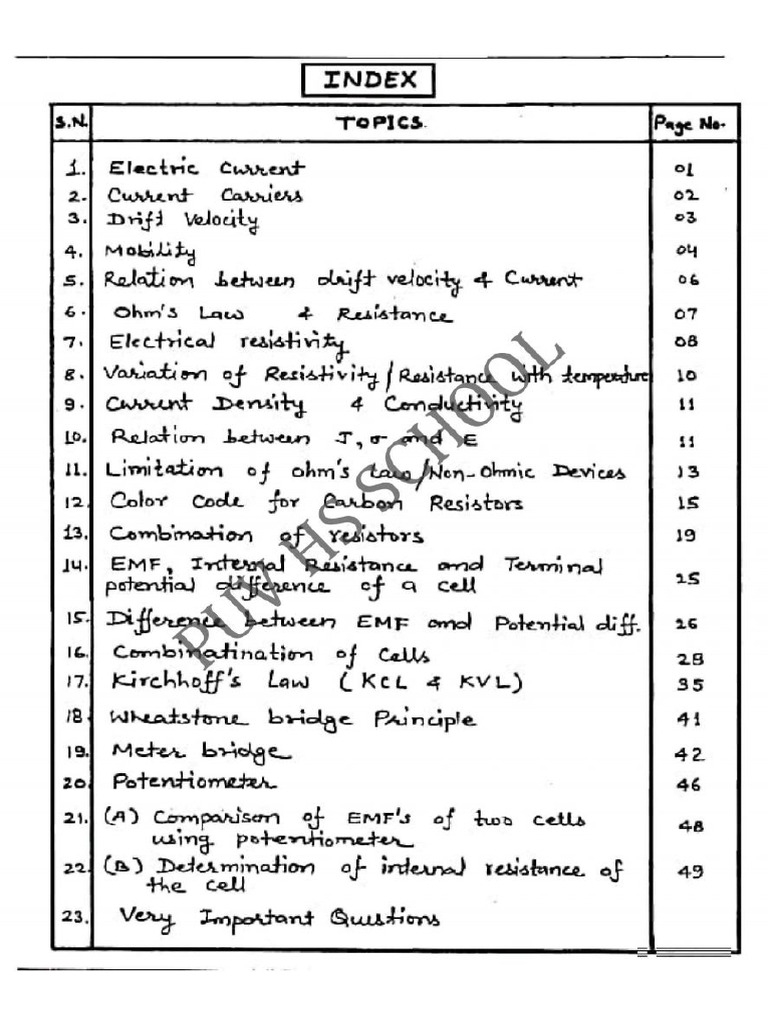 INDEX
S.N. TOPICS. Page No.
1. Electric Current 01
2. Current Carriers 02
3. Drift Velocity 03
4. Mobility 04
5. Relation between drift velocity & Current 06
6. Ohm's Law & Resistance 07
7. Electrical resistivity 08
8. Variation of Resistivity/Resistance with temperature 10
9. Current Density & Conductivity 11
10. Relation between J, σ and E 11
11. Limitation of ohm's Law/Non-Ohmic Devices 13
12. Color Code for Carbon Resistors 15
13. Combination of resistors 19
14. EMF, Internal Resistance and Terminal
potential difference of a cell 25
15. Difference between EMF and Potential diff. 26
16. Combinatination of Cells 28
17. Kirchhoff's Law (KCL & KVL) 35
18. Wheatstone bridge Principle 41
19. Meter bridge 42
20. Potentiometer 46
21. (A) Comparison of EMF's of two cells
using potentiometer 48
22. (B) Determination of internal resistance of
the cell 49
23. Very Important Questions
PUW HS SCHOOL